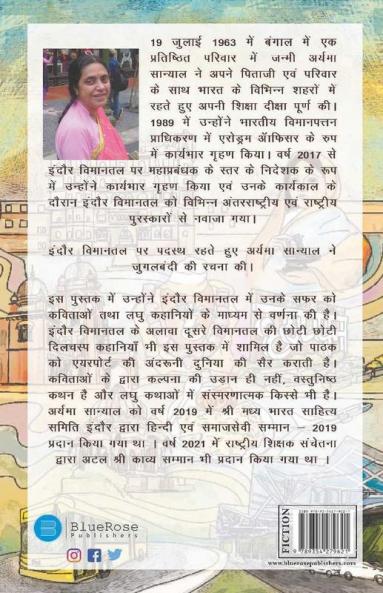 19 जुलाई 1963 में बंगाल में एक
प्रतिष्ठित परिवार में जन्मी अर्यमा
सान्याल ने अपने पिताजी एवं परिवार
के साथ भारत के विभिन्न शहरों में
रहते हुए अपनी शिक्षा दीक्षा पूर्ण की।
1989 में उन्होंने भारतीय विमानपत्तन
प्राधिकरण में एरोड्रम ऑफिसर के रुप
में कार्यभार गृहण किया। वर्ष 2017 से
इंदौर विमानतल पर महाप्रबंधक के स्तर के निदेशक के रूप
में उन्होंने कार्यभार गृहण किया एवं उनके कार्यकाल के
दौरान इंदौर विमानतल को विभिन्न अंतरराष्ट्रीय एवं राष्ट्रीय
पुरस्कारों से नवाजा गया।
इंदौर विमानतल पर पदस्थ रहते हुए अर्यमा सान्याल ने
जुगलबंदी की रचना की।
इस पुस्तक में उन्होंने इंदौर विमानतल में उनके सफर को
कविताओं तथा लघु कहानियों के माध्यम से वर्णना की है।
इंदौर विमानतल के अलावा दूसरे विमानतल की छोटी छोटी
दिलचस्प कहानियाँ भी इस पुस्तक में शामिल है जो पाठक
को एयरपोर्ट की अंदरूनी दुनिया की सैर कराती है।
कविताओं के द्वारा कल्पना की उड़ान ही नहीं, वस्तुनिष्ठ
कथन है और लघु कथाओं में संस्मरणात्मक किस्से भी है।
अर्यमा सान्याल को वर्ष 2019 में श्री मध्य भारत साहित्य
समिति इंदौर द्वारा हिन्दी एवं समाजसेवी सम्मान – 2019
प्रदान किया गया था । वर्ष 2021 में राष्ट्रीय शिक्षक संचेतना
द्वारा अटल श्री काव्य सम्मान भी प्रदान किया गया था ।
B
BlueRose
Publishers
FICTION
9 789354 279621
www.bluerosepublishers.com